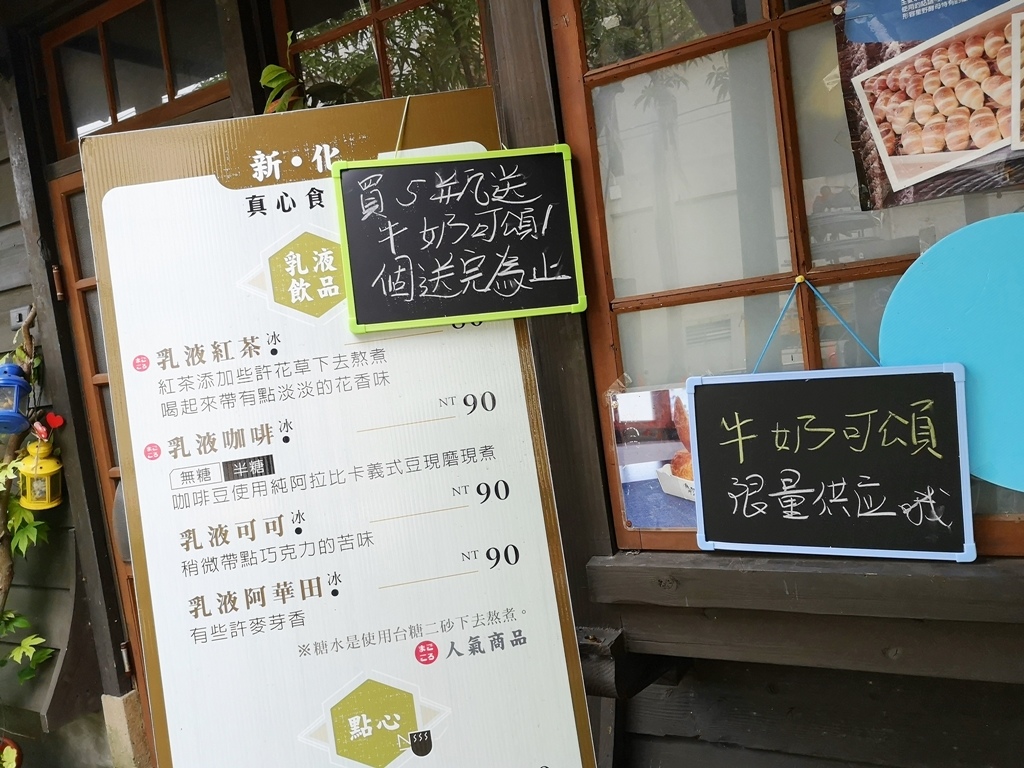 新·化
真心食
乳液
飲品
買5瓶送
牛奶可頌1
個送完為止
乳液紅茶 冰
紅茶添加些許花草下去熬煮
喝起來帶有點淡淡的花香味
乳液咖啡 冰
NT 90
無糖 半糖
咖啡豆使用純阿拉比卡義式豆現磨現煮
乳液可可 冰
NT 90
稍微帶點巧克力的苦味
乳液阿華田 冰
NT 90
有些許麥芽香
※糖水是使用台糖二砂下去熬煮。
まごころ 人氣商品
點心
牛奶可頌
限量供应